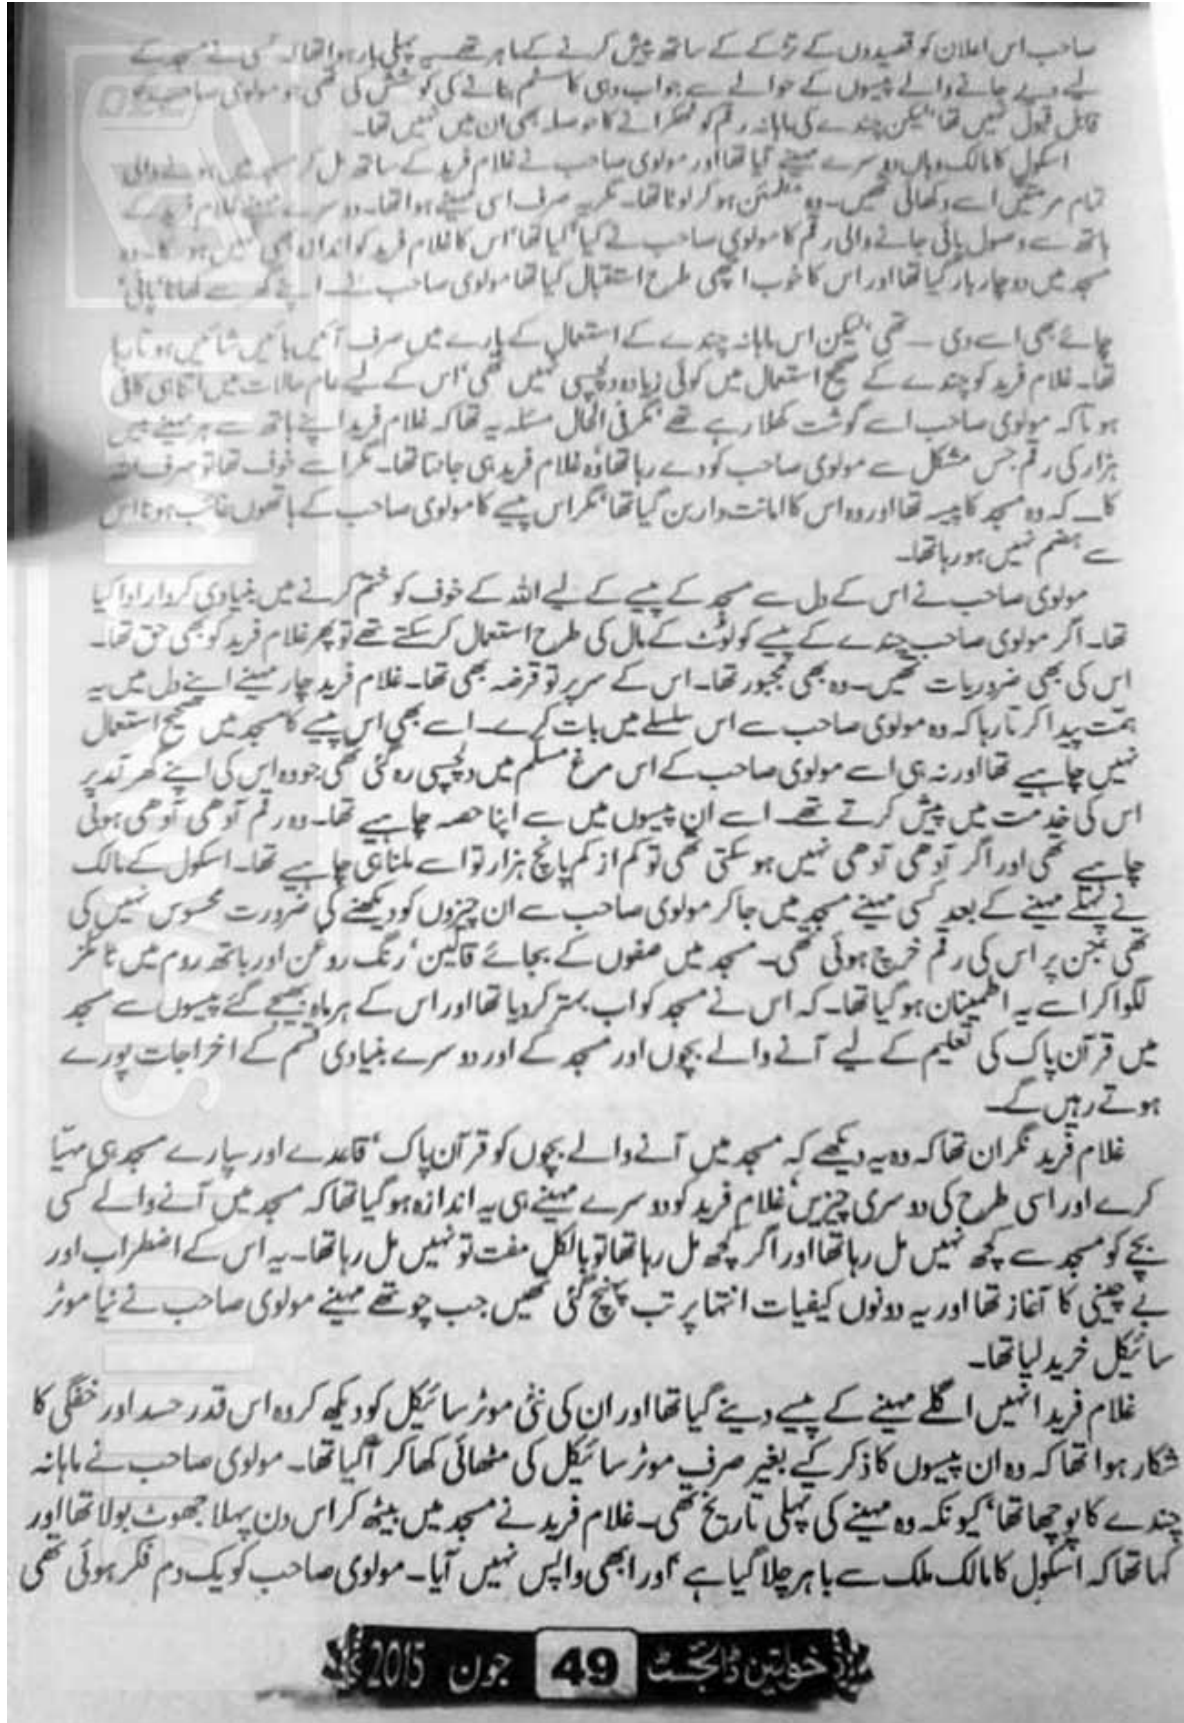 صاحب اس اعلان کو قصیدوں کے تڑکے کے ساتھ پیش کرنے کے ماہر تھے۔ یہ پہلی بار ہوا تھا کہ کسی نے مسجد کے
لیے دیے جانے والے پیسوں کے حوالے سے جواب دہی کا سسٹم بنانے کی کوشش کی تھی جو مولوی صاحب کو
قابل قبول نہیں تھا' لیکن چندے کی ماہانہ رقم کو ٹھکرانے کا حوصلہ بھی ان میں نہیں تھا۔
اسکول کا مالک وہاں دوسرے مہینے آیا تھا اور مولوی صاحب نے غلام فرید کے ساتھ مل کر مسجد میں ہونے والی
تمام مرمتیں اسے دکھائی تھیں۔ وہ مطمئن ہو کر لوٹا تھا۔ مگر یہ صرف اسی مہینے ہوا تھا۔ دوسرے مہینے غلام فرید کے
ہاتھ سے وصول پائی جانے والی رقم کا مولوی صاحب نے کیا' کیا تھا' اس کا غلام فرید کو اندازہ بھی نہیں ہو سکا۔ وہ
مسجد میں دو چار بار گیا تھا اور اس کا خوب اچھی طرح استقبال کیا تھا مولوی صاحب نے۔ اپنے گھر سے کھانا' پانی'
چائے بھی اسے دی۔ تھی' لیکن اس ماہانہ چندے کے استعمال کے بارے میں صرف آئیں بائیں شائیں ہوتا رہا
تھا۔ غلام فرید کو چندے کے صحیح استعمال میں کوئی زیادہ دلچسپی نہیں تھی' اس کے لیے عام حالات میں اتنا ہی کافی
ہوتا کہ مولوی صاحب اسے گوشت کھلا رہے تھے' مگر فی الحال مسئلہ یہ تھا کہ غلام فرید اپنے ہاتھ سے ہر مہینے بیس
ہزار کی رقم جس مشکل سے مولوی صاحب کو دے رہا تھا' وہ غلام فرید ہی جانتا تھا۔ مگر اسے خوف تھا تو صرف اللہ
کا۔ کہ وہ مسجد کا پیسہ تھا اور وہ اس کا امانت دار بن گیا تھا' مگر اس پیسے کا مولوی صاحب کے ہاتھوں غائب ہونا اس
سے ہضم نہیں ہو رہا تھا۔
مولوی صاحب نے اس کے دل سے مسجد کے پیسے کے لیے اللہ کے خوف کو ختم کرنے میں بنیادی کردار ادا کیا
تھا۔ اگر مولوی صاحب چندے کے پیسے کو لوٹ کے مال کی طرح استعمال کر سکتے تھے تو پھر غلام فرید کو بھی حق تھا۔
اس کی بھی ضروریات تھیں۔ وہ بھی مجبور تھا۔ اس کے سر پر تو قرضہ بھی تھا۔ غلام فرید چار مہینے اپنے دل میں یہ
ہمّت پیدا کرتا رہا کہ وہ مولوی صاحب سے اس سلسلے میں بات کرے۔ اسے بھی اس پیسے کا مسجد میں صحیح استعمال
نہیں چاہیے تھا اور نہ ہی اسے مولوی صاحب کے اس مرغ مسلم میں دلچسپی رہ گئی تھی جو وہ اس کی اپنے گھر آمد پر
اس کی خدمت میں پیش کرتے تھے۔ اسے ان پیسوں میں سے اپنا حصہ چاہیے تھا۔ وہ رقم آدھی آدھی ہونی
چاہیے تھی اور اگر آدھی آدھی نہیں ہو سکتی تھی تو کم از کم پانچ ہزار تو اسے ملنا ہی چاہیے تھا۔ اسکول کے مالک
نے پہلے مہینے کے بعد کسی مہینے مسجد میں جا کر مولوی صاحب سے ان چیزوں کو دیکھنے کی ضرورت محسوس نہیں کی
تھی' جن پر اس کی رقم خرچ ہوئی تھی۔ مسجد میں صفوں کے بجائے قالین' رنگ روغن اور باتھ روم میں ٹائلز
لگوا کر اسے یہ اطمینان ہو گیا تھا۔ کہ اس نے مسجد کو اب بہتر کر دیا تھا اور اس کے ہر ماہ بھیجے گئے پیسوں سے مسجد
میں قرآن پاک کی تعلیم کے لیے آنے والے بچوں اور مسجد کے اور دوسرے بنیادی قسم کے اخراجات پورے
ہوتے رہیں گے۔
غلام فرید نگران تھا کہ وہ یہ دیکھے کہ مسجد میں آنے والے بچوں کو قرآن پاک' قاعدے اور سپارے مسجد ہی مہیّا
کرے اور اسی طرح کی دوسری چیزیں' غلام فرید کو دوسرے مہینے ہی یہ اندازہ ہو گیا تھا کہ مسجد میں آنے والے کسی
بچے کو مسجد سے کچھ نہیں مل رہا تھا اور اگر کچھ مل رہا تھا تو بالکل مفت تو نہیں مل رہا تھا۔ یہ اس کے اضطراب اور
بے چینی کا آغاز تھا اور یہ دونوں کیفیات انتہا پر تب پہنچ گئی تھیں جب چوتھے مہینے مولوی صاحب نے نیا موٹر
سائیکل خرید لیا تھا۔
غلام فرید انہیں اگلے مہینے کے پیسے دینے گیا تھا اور ان کی نئی موٹر سائیکل کو دیکھ کر وہ اس قدر حسد اور خفگی کا
شکار ہوا تھا کہ وہ ان پیسوں کا ذکر کیے بغیر صرف موٹر سائیکل کی مٹھائی کھا کر آ گیا تھا۔ مولوی صاحب نے ماہانہ
چندے کا پوچھا تھا' کیونکہ وہ مہینے کی پہلی تاریخ تھی۔ غلام فرید نے مسجد میں بیٹھ کر اس دن پہلا جھوٹ بولا تھا اور
کہا تھا کہ اسکول کا مالک ملک سے باہر چلا گیا ہے' اور ابھی واپس نہیں آیا۔ مولوی صاحب کو یک دم فکر ہوئی تھی
خواتین ڈائجسٹ 49 جون 2015